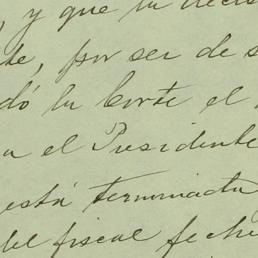 , y que la
te, por ser de s
dó la Corte el
a el Presidente
está terminada
del fiscal fech